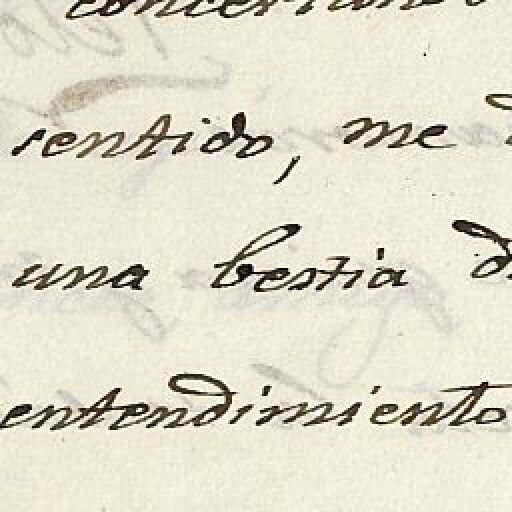 sentido, me
una bestia
entendimiento